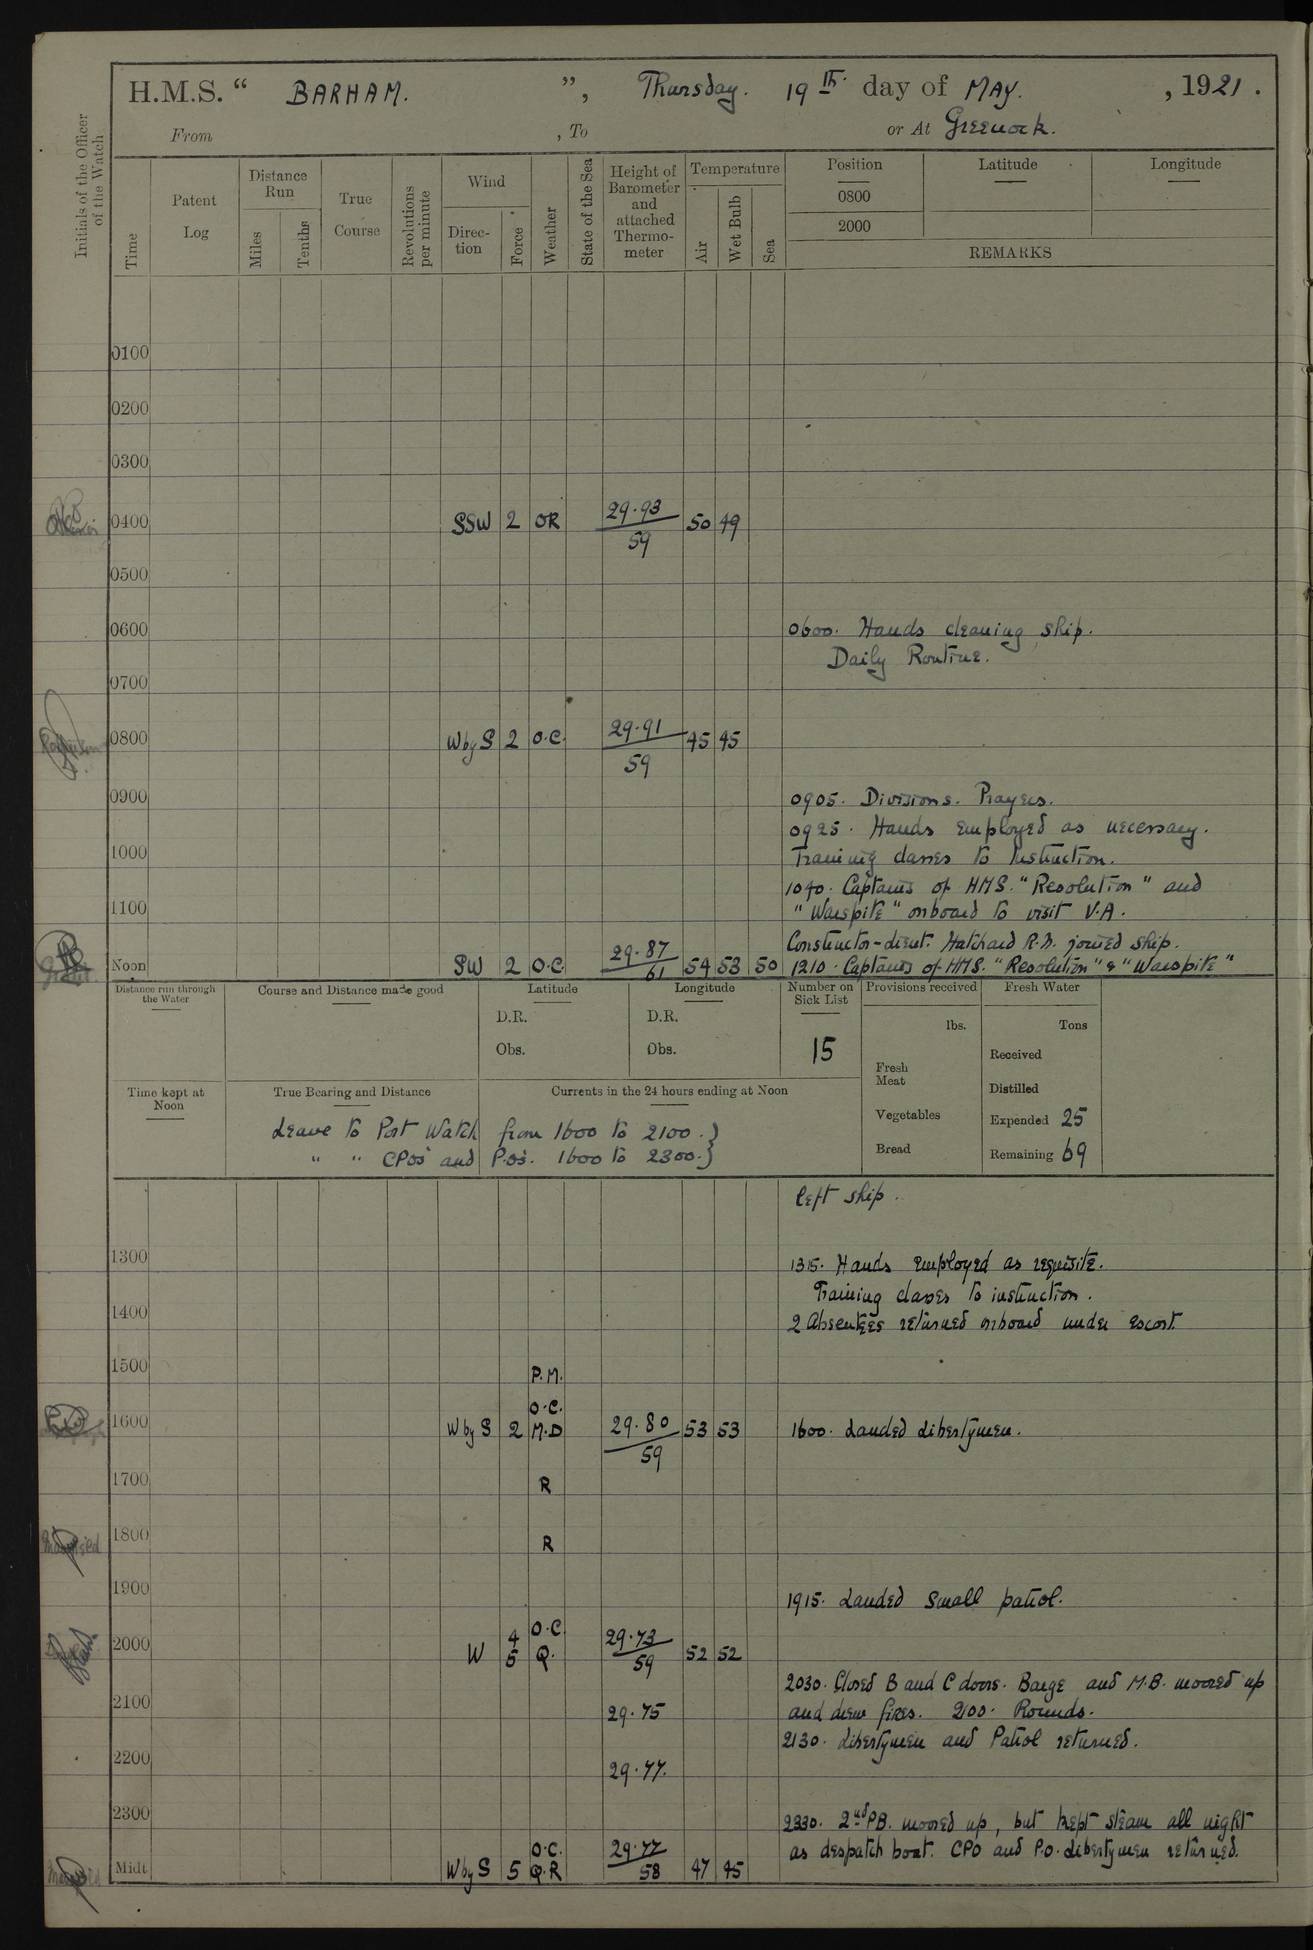 H.M.S. “ BARHAM. ”, Thursday. 19th. day of MAY. , 1921.
From , To or At Greenock.
Initials of the Officer of the Watch
Time
Patent Log
Distance Run
Miles
Tenths
True Course
Revolutions per minute
Wind
Direction
Force
Weather
State of the Sea
Height of Barometer and attached Thermometer
Temperature
Air
Wet Bulb
Sea
Position
Latitude
Longitude
0800
2000
REMARKS
0100
0200
0300
0400 SSW 2 OR 29.93 50 49
59
0500
0600 0600. Hands cleaning ship.
Daily Routine.
0700
0800 W by S 2 O.C. 29.91 45 45
59
0900 0905. Divisions. Prayers.
0925. Hands employed as necessary.
1000 Training classes to Instruction.
1040. Captains of HMS. "Resolution" and
1100 "Warspite" onboard to visit V.A.
Constructor-Lieut. Hatchard R.N. joined ship.
Noon SW 2 O.C. 29.87 54 53 50 1210. Captains of HMS. "Resolution" & "Warspite"
61
Distance run through the Water
Course and Distance made good
Latitude
D.R.
Obs.
Longitude
D.R.
Obs.
Number on Sick List
15
Provisions received
lbs.
Fresh Meat
Vegetables
Bread
Fresh Water
Tons
Received
Distilled
Expended 25
Remaining 69
Time kept at Noon
True Bearing and Distance
Currents in the 24 hours ending at Noon
Leave to Port Watch from 1600 to 2100.}
" " CPOs and P.Os. 1600 to 2300.}
left ship.
1300 1315. Hands employed as requisite.
Training classes to instruction.
1400 2 Absentees returned onboard under escort.
1500 P.M.
O.C.
1600 W by S 2 M.D 29.80 53 53 1600. Landed Libertymen.
59
1700 R
1800 R
1900 1915. Landed small patrol.
4 O.C
2000 W 5 Q. 29.73 52 52
59
2030. Closed B and C doors. Barge and M.B. moored up
2100 29.75 and drew fires. 2100. Rounds.
2130. Libertymen and Patrol returned.
2200 29.77.
2300 2330. 2nd PB. moored up, but kept steam all night
O.C. 29.77 as despatch boat. CPO and P.O. Libertymen returned.
Midt W by S 5 Q.R 58 47 45